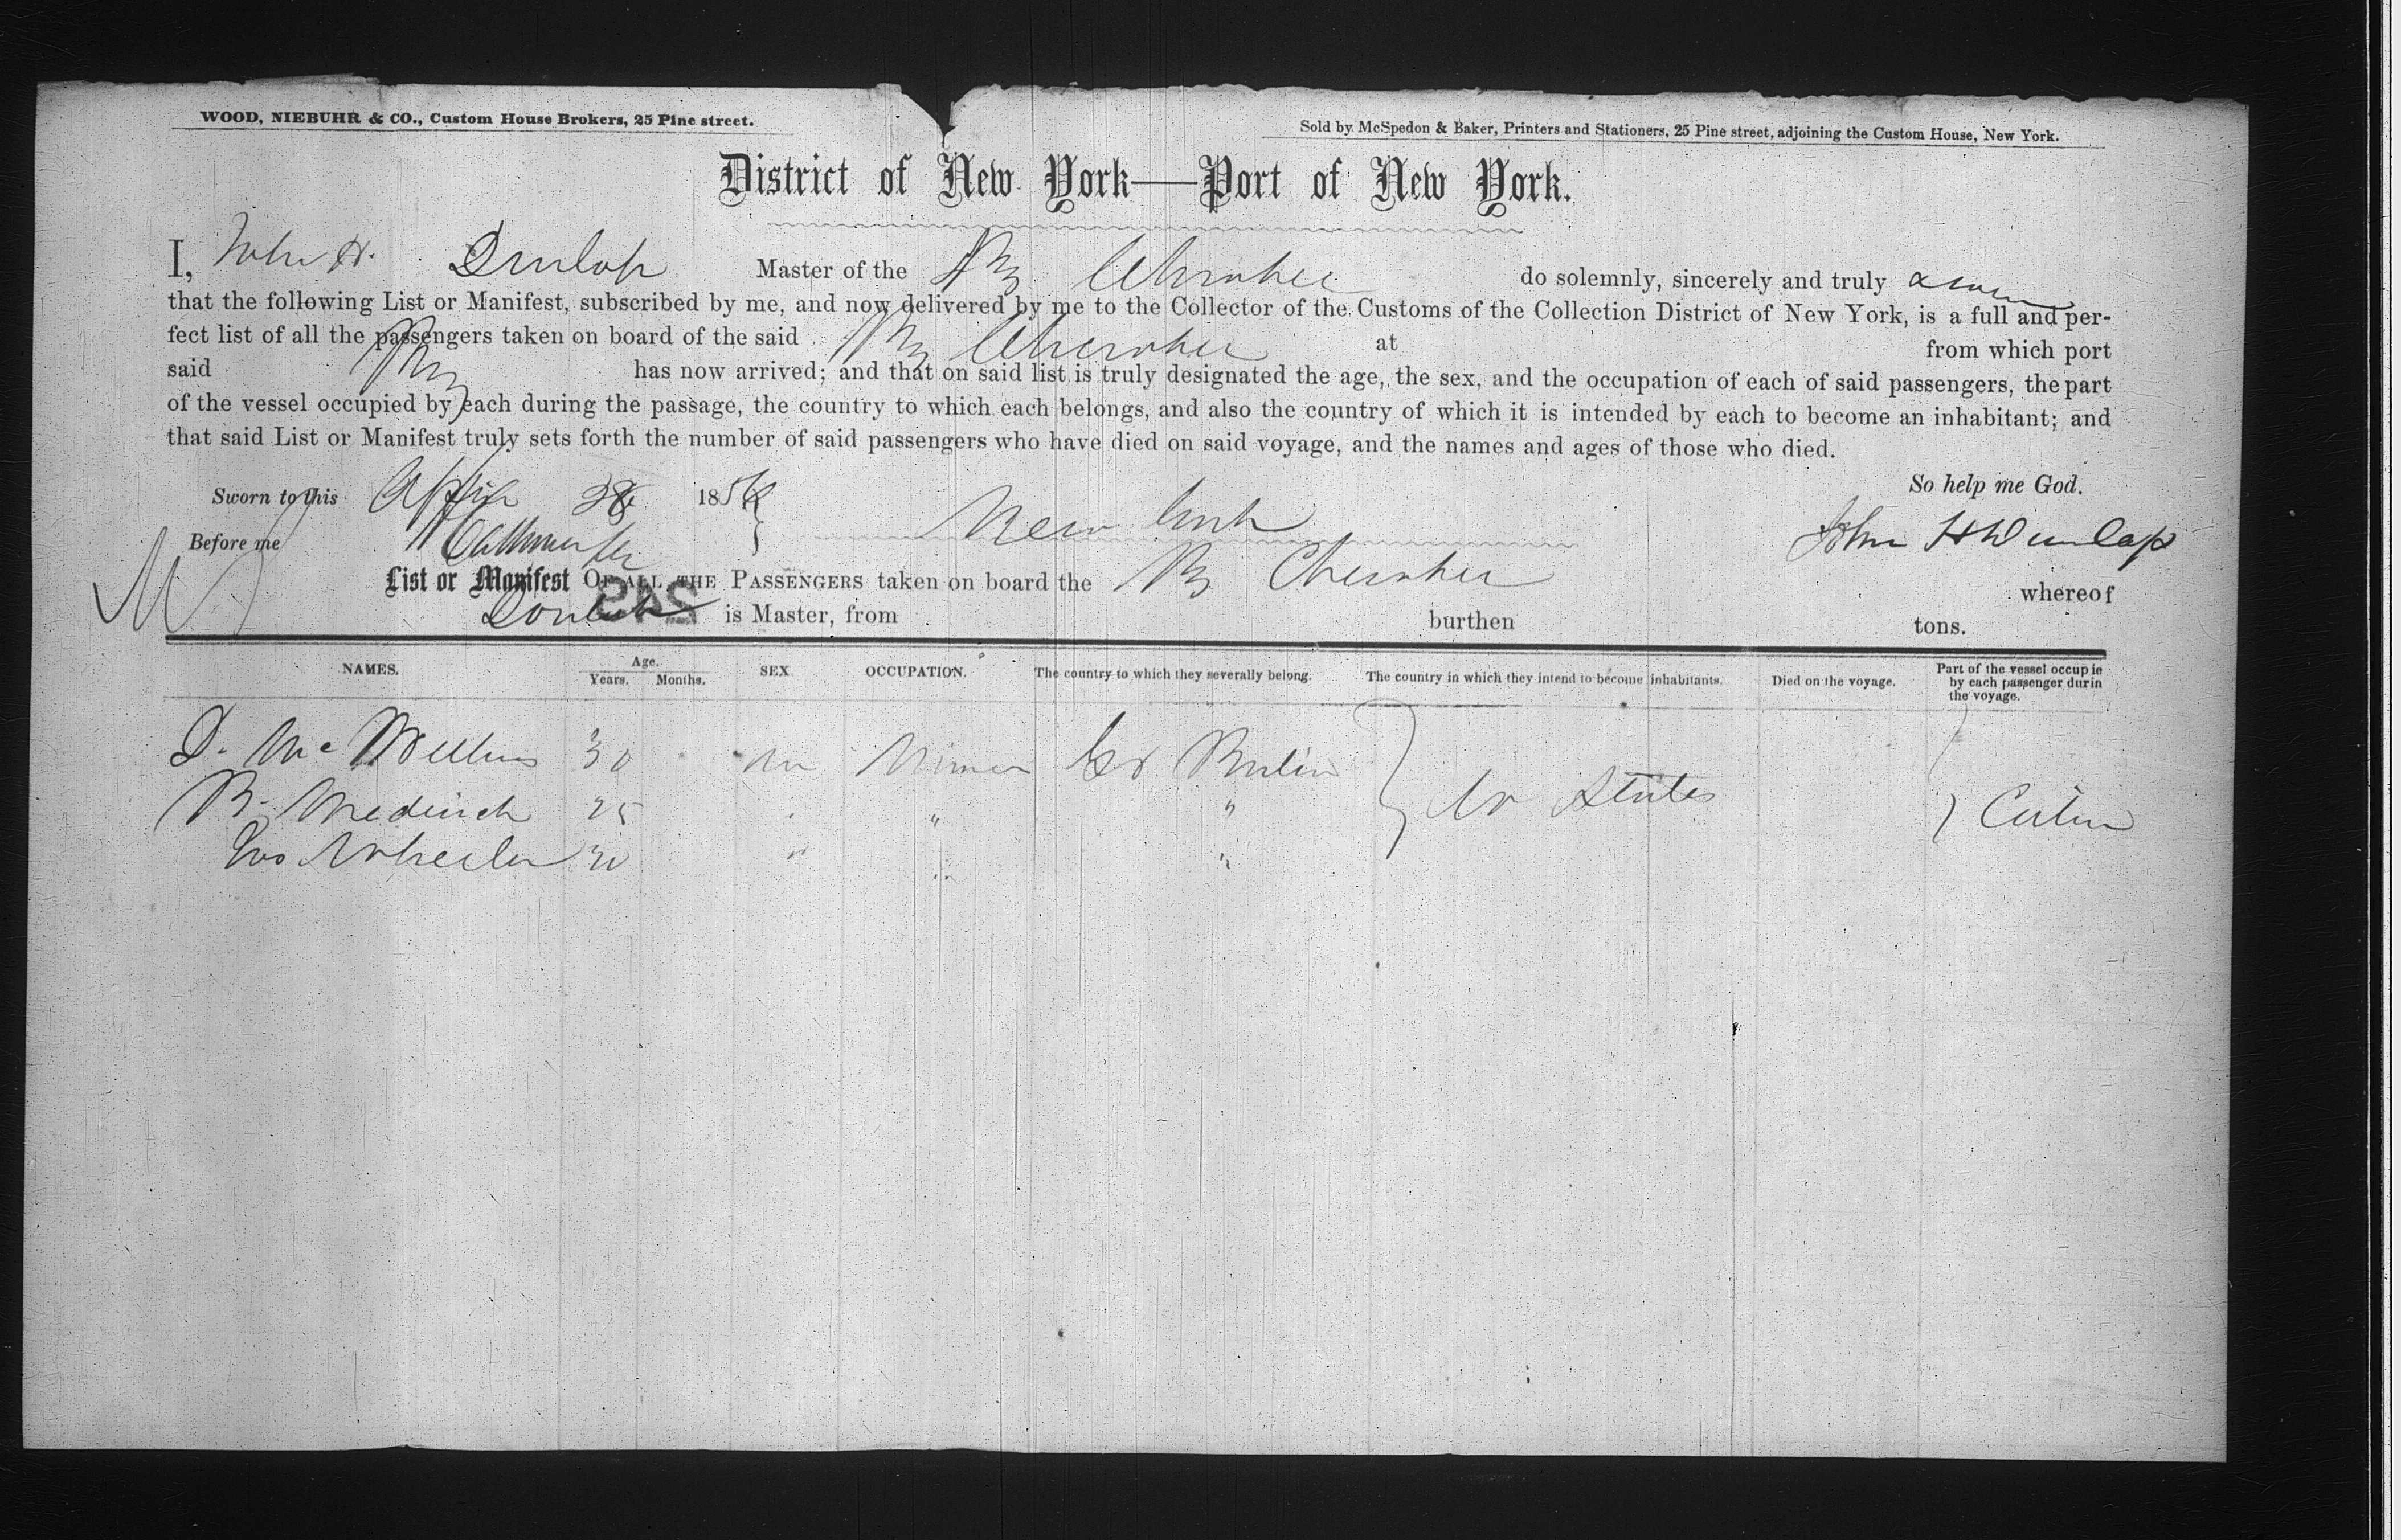 WOOD, NIEBUHR & CO., Custom House Brokers, 25 Pine street.
Sold by McSpedon & Baker, Printers and Stationers, 25 Pine street, adjoining the Custom House, New York.
District of New York—Port of New York.
I, John H. Dunlap Master of the Brig Cherokee do solemnly, sincerely and truly
that the following List or Manifest, subscribed by me, and now delivered by me to the Collector of the Customs of the Collection District of New York, is a full and per-
fect list of all the passengers taken on board of the said Brig Cherokee at from which port
said Brig has now arrived; and that on said list is truly designated the age, the sex, and the occupation of each of said passengers, the part
of the vessel occupied by each during the passage, the country to which each belongs, and also the country of which it is intended by each to become an inhabitant; and
that said List or Manifest truly sets forth the number of said passengers who have died on said voyage, and the names and ages of those who died.
So help me God.
Sworn to this April 28 1856
New York
John H Dunlap
Before me
List or Manifest OF ALL THE PASSENGERS taken on board the Brig Cherokee whereof
245
Dunlap is Master, from burthen tons.
NAMES. Age. Years. Months. SEX. OCCUPATION. The country to which they severally belong. The country in which they intend to become inhabitants. Died on the voyage. Part of the vessel occupie by each passenger durin the voyage.
D. Mc 30 m Gr Britain
B. 25 " " U States Cabin
Jno Wheeler 30 " " "